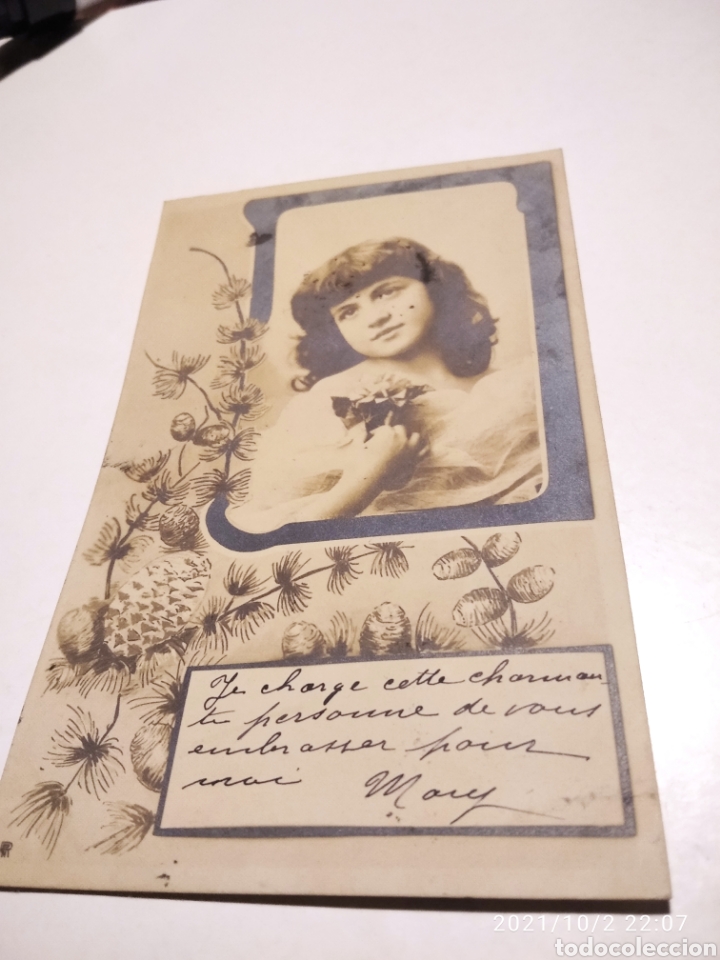 Je charge cette charman
te personne de vous
embrasser pour
moi Mary
2021/10/2 22:07
todocoleccion